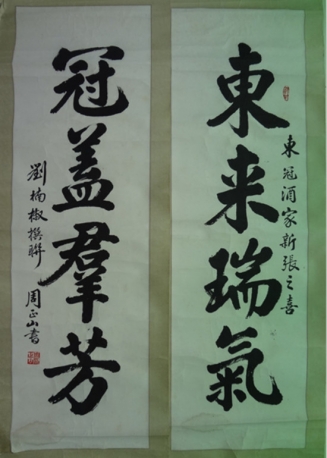 東来瑞氣
東冠酒家新張之喜
冠蓋羣芳
劉楠椒撰聯
周正山書